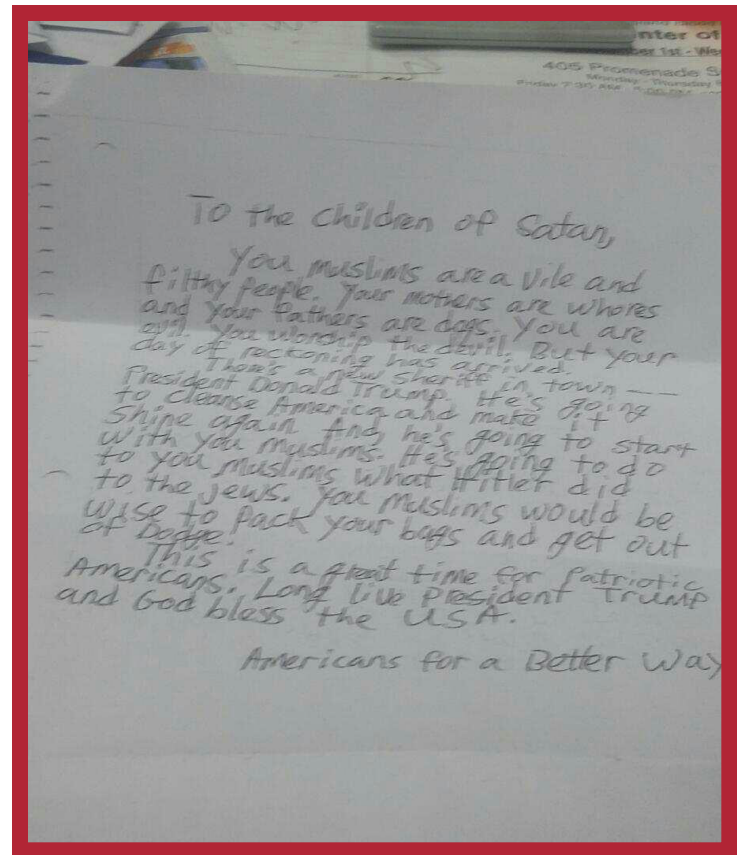 nter of
ber 1st - We
405 Promenade S
Monday - Thursday
To the Children of Satan,
You muslims are a vile and
filthy people. Your mothers are whores
and your fathers are dogs. You are
evil. You worship the devil. But your
day of reckoning has arrived.
There's a new sheriff in town —
President Donald Trump. He's going
to cleanse America and make it
shine again. And, he's going to start
with you muslims. He's going to do
to you muslims what Hitler did
to the jews. You muslims would be
wise to pack your bags and get out
of Dodge.
This is a great time for Patriotic
Americans. Long live President Trump
and God bless the USA.
Americans for a Better Way